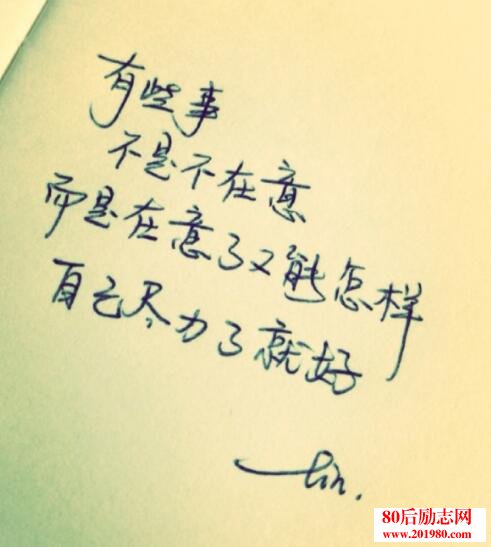 有些事
不是不在意
而是在意了又能怎样
自己尽力了就好
lin.
80后励志网
www.201980.com